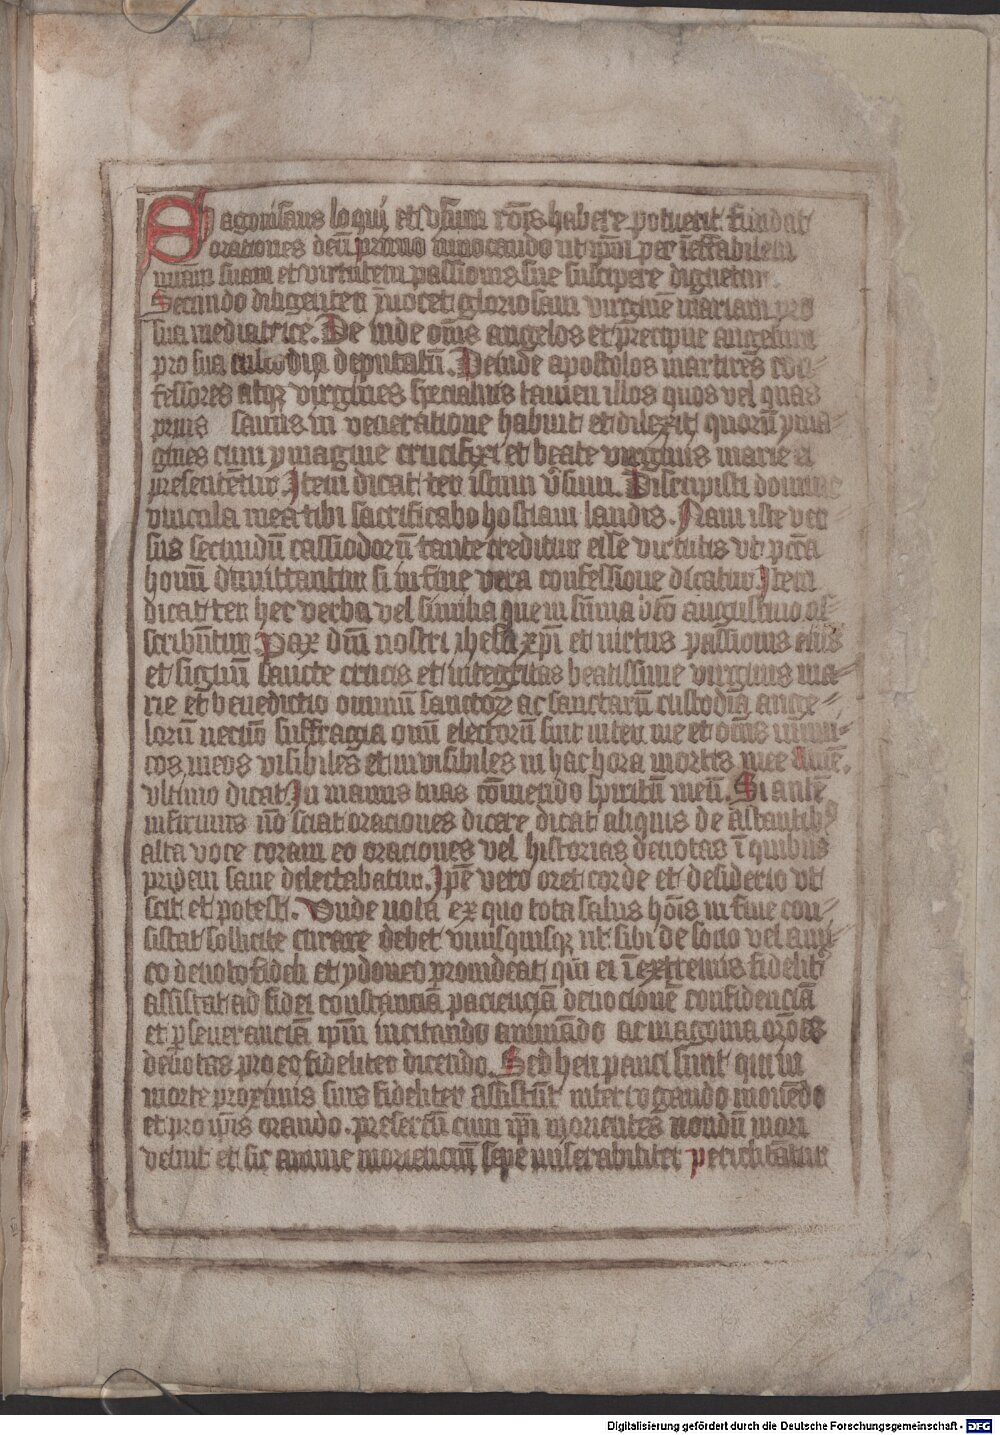 Si agonisans loqui et vsum rōis habere potuerit fundat
orationes deū primo inuocando ut ipm̄ per ineffabilem
miām suam et virtutem passionis sue suscipere dignetur.
Secundo diligenter īuocet gloriosam virginē mariam pro
sua mediatrice. De inde om̄s angelos et p̄recipue angelum
pro sua custodia deputatū. Deinde apostolos martires con-
fessores atqʒ virgines specialius tamen illos quos vel quas
prius sanus in veneratione habuit et dilexit quorū yma-
gines cum ymagine crucifixi et beate virginis marie ei
presentētur Item dicat ter istum v̄sum. Disrupisti domine
vincula mea tibi sacrificabo hostiam laudis. Nam iste ver
sus secundū cassiodorū tante creditur esse virtutis vt pctā
homī dimittantur si in fine vera confessione dicatur. Item
dicat ter hec verba vel similia que in sūma b̄to augustino as-
scribūntur Pax dn̄i nostri ihesu xp̄i et virtus passionis eius
et signū sancte crucis et integritas beatissime virginis ma-
rie et benedictio omniū sanctoꝝ ac sanctarū custodia ange-
lorū necnō suffragia omī electorū sint inter me et om̄s inimi-
cos meos visibiles et invisibiles in hac hora mortis mee Amē.
vltimo dicat In manus tuas cōmendo spiritū meū. Si autē
infirmus nō sciat oraciones dicere dicat aliquis de astantibꝰ
alta voce coram eo oraciones vel historias deuotas ī quibus
pridem sane delectabatur. Ipē vero oret corde et desiderio vt
scit et potest. Vnde nota ex quo tota salus hōis in fine con-
sistat sollicite curare debet vnusquisqʒ ut sibi de socio vel ami
co deuoto fideli et ydoneo prouideat qui ei ī extremis fideliter
assistat ad fidei constanciā pacienciā deuocionē confidenciā
et pseueranciā ipm̄ incitando animādo ac in agonia orōes
deuotas pro eo fideliter dicendo. Sed heu pauci sunt qui in
morte proximis suis fideliter assistūt interrogando monēdo
et pro ip̄is orando. presertī cum ipi morientes nondū mori
velint et sic anime morienciū sepe miserabiliter periclitātur
Digitalisierung gefördert durch die Deutsche Forschungsgemeinschaft - DFG